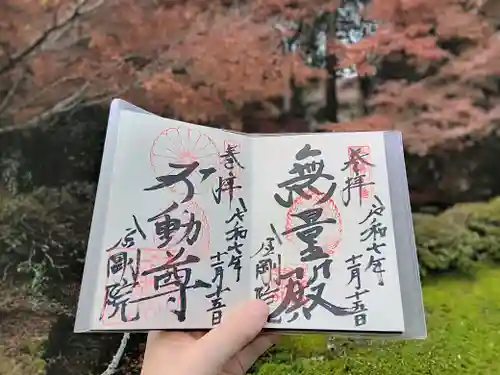 奉拝
令和七年十一月十五日
無量殿
金剛院
奉拝
令和七年十一月十五日
不動尊
金剛院